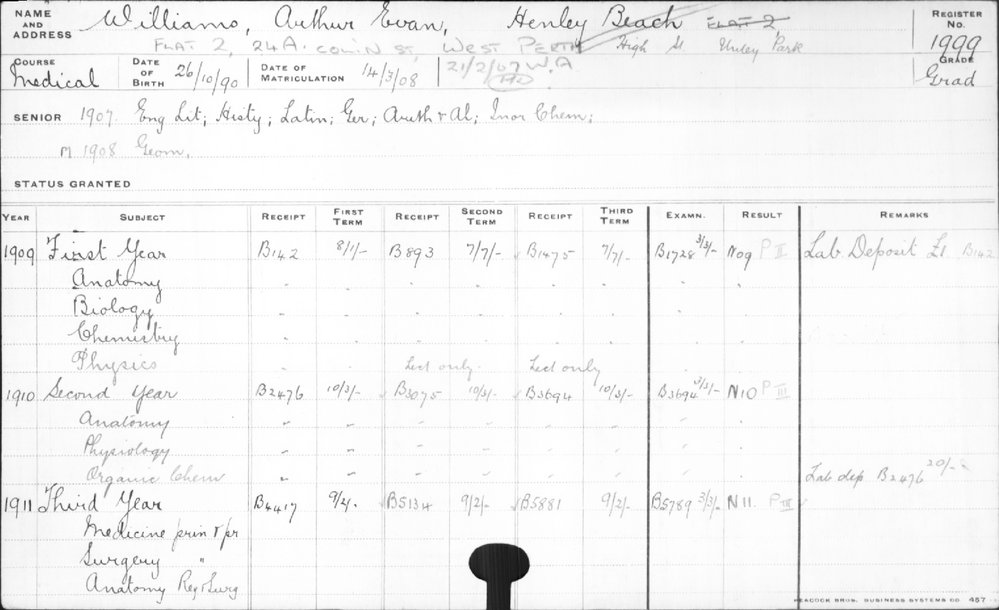 NAME AND ADDRESS Williams, Arthur Evan, Henley Beach FLAT 2, REGISTER NO.
FLAT 2, 24A. COLIN ST, WEST PERTH High St Unley Park 1999
COURSE Medical DATE OF BIRTH 26/10/90 DATE OF MATRICULATION 14/3/08 21/2/67 W.A GRADE Grad
SENIOR 1907. Eng Lit; Histy; Latin; Ger; Arith & Al; Inor Chem;
M 1908 Geom.
STATUS GRANTED
YEAR SUBJECT RECEIPT FIRST TERM RECEIPT SECOND TERM RECEIPT THIRD TERM EXAMN. RESULT REMARKS
1909 First Year B142 8/1/- B893 7/7/- B1475 7/7/- B1728 3/3/- N09 P II Lab. Deposit £1 B142
Anatomy " . . . . .
Biology . . . . . .
Chemistry . . . . . .
Physics " Lect only. Lect only
1910 Second Year B2476 10/3/- B3075 10/3/- B3694 10/3/- B3694 3/3/- N10 P III
Anatomy " " " " " "
Physiology " " " " " "
Organic Chem " " " " " " Lab dep B2476 20/-
1911 Third Year B4417 9/2/- B5134 9/2/- B5881 9/2/- B5789 3/3/- N11. P III
Medicine prin & pr
Surgery "
Anatomy Reg & Surg
PEACOCK BROS. BUSINESS SYSTEMS CO 457